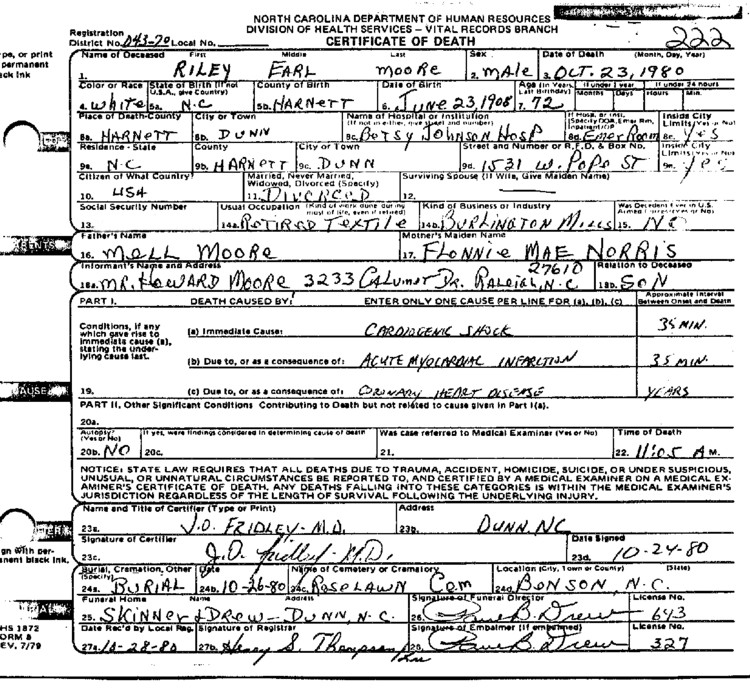 NORTH CAROLINA DEPARTMENT OF HUMAN RESOURCES
DIVISION OF HEALTH SERVICES – VITAL RECORDS BRANCH
Registration District No. 043-70 Local No. CERTIFICATE OF DEATH 222
pe, or print
permanent
ack ink
Name of Deceased First Middle Last Sex Date of Death (Month, Day, Year)
1. RILEY EARL MOORE 2. MALE 3. OCT. 23, 1980
Color or Race State of Birth (If not U.S.A., give Country) County of Birth Date of Birth Age (In Years Last Birthday) If under 1 year Months Days If under 24 hours Hours Min.
4. White 5a. N.C 5b. HARNETT 6. JUNE 23, 1908 7. 72
Place of Death-County City or Town Name of Hospital or Institution (If not in either, give street and number) If Hosp. or Inst. (Specify DOA, Emer Rm, Inpatient) OP Inside City Limits (Yes or No)
8a. HARNETT 8b. DUNN 8c. Betsy Johnson Hosp 8d. Emer Room 8e. Yes
Residence - State County City or Town Street and Number or R.F.D. & Box No. Inside City Limits (Yes or No)
9a. N.C 9b. HARNETT 9c. DUNN 9d. 1531 W. Pope ST 9e. Yes
Citizen of What Country? Married, Never Married, Widowed, Divorced (Specify) Surviving Spouse (If Wife, Give Maiden Name)
10. USA 11. DIVORCED 12.
Social Security Number Usual Occupation (Kind of work done during most of life, even if retired) Kind of Business or Industry Was Decedent Ever in U.S. Armed Forces (Yes or No)
13. 14a. Retired Textile 14b. Burlington Mills 15. NO
Father's Name Mother's Maiden Name
16. MELL MOORE 17. FLONNIE MAE NORRIS
Informant's Name and Address Relation to Deceased
18a. MR. HOWARD MOORE 3233 CALUMET DR. RALEIGH, N.C 27610 18b. SON
PART I. DEATH CAUSED BY: ENTER ONLY ONE CAUSE PER LINE FOR (a), (b), (c) Approximate Interval Between Onset and Death
Conditions, if any which gave rise to immediate cause (a), stating the underlying cause last.
(a) Immediate Cause: CARDIOGENIC SHOCK 35 MIN.
(b) Due to, or as a consequence of: ACUTE MYOCARDIAL INFARCTION 35 MIN.
19. (c) Due to, or as a consequence of: CORONARY HEART DISEASE YEARS
PART II. Other Significant Conditions Contributing to Death but not related to cause given in Part I(a).
20a.
Autopsy? (Yes or No) If yes, were findings considered in determining cause of death Was case referred to Medical Examiner (Yes or No) Time of Death
20b. NO 20c. 21. 22. 11:05 A M.
NOTICE: STATE LAW REQUIRES THAT ALL DEATHS DUE TO TRAUMA, ACCIDENT, HOMICIDE, SUICIDE, OR UNDER SUSPICIOUS,
UNUSUAL, OR UNNATURAL CIRCUMSTANCES BE REPORTED TO, AND CERTIFIED BY A MEDICAL EXAMINER ON A MEDICAL EX-
AMINER'S CERTIFICATE OF DEATH. ANY DEATHS FALLING INTO THESE CATEGORIES IS WITHIN THE MEDICAL EXAMINER'S
JURISDICTION REGARDLESS OF THE LENGTH OF SURVIVAL FOLLOWING THE UNDERLYING INJURY.
Name and Title of Certifier (Type or Print) Address
23a. J.O. FRIDLEY-M.D. 23b. DUNN, NC
Signature of Certifier Date Signed
23c. J.O. Fridley M.D. 23d. 10-24-80
gn with per-
anent black ink.
Burial, Cremation, Other (Specify) Date Name of Cemetery or Crematory Location (City, Town or County) (State)
24a. BURIAL 24b. 10-26-80 24c. ROSELAWN Cem 24d. BENSON, N.C.
Funeral Home Name Address Signature of Funeral Director License No.
25. SKINNER & DREW - DUNN, N.C. 26. Paul B. Drew 643
Date Rec'd by Local Reg. Signature of Registrar Signature of Embalmer (If embalmed) License No.
27a. 10-28-80 27b. Henry S. Thompson 28. Paul B. Drew 327
HS 1872
ORM 8
EV. 7/79